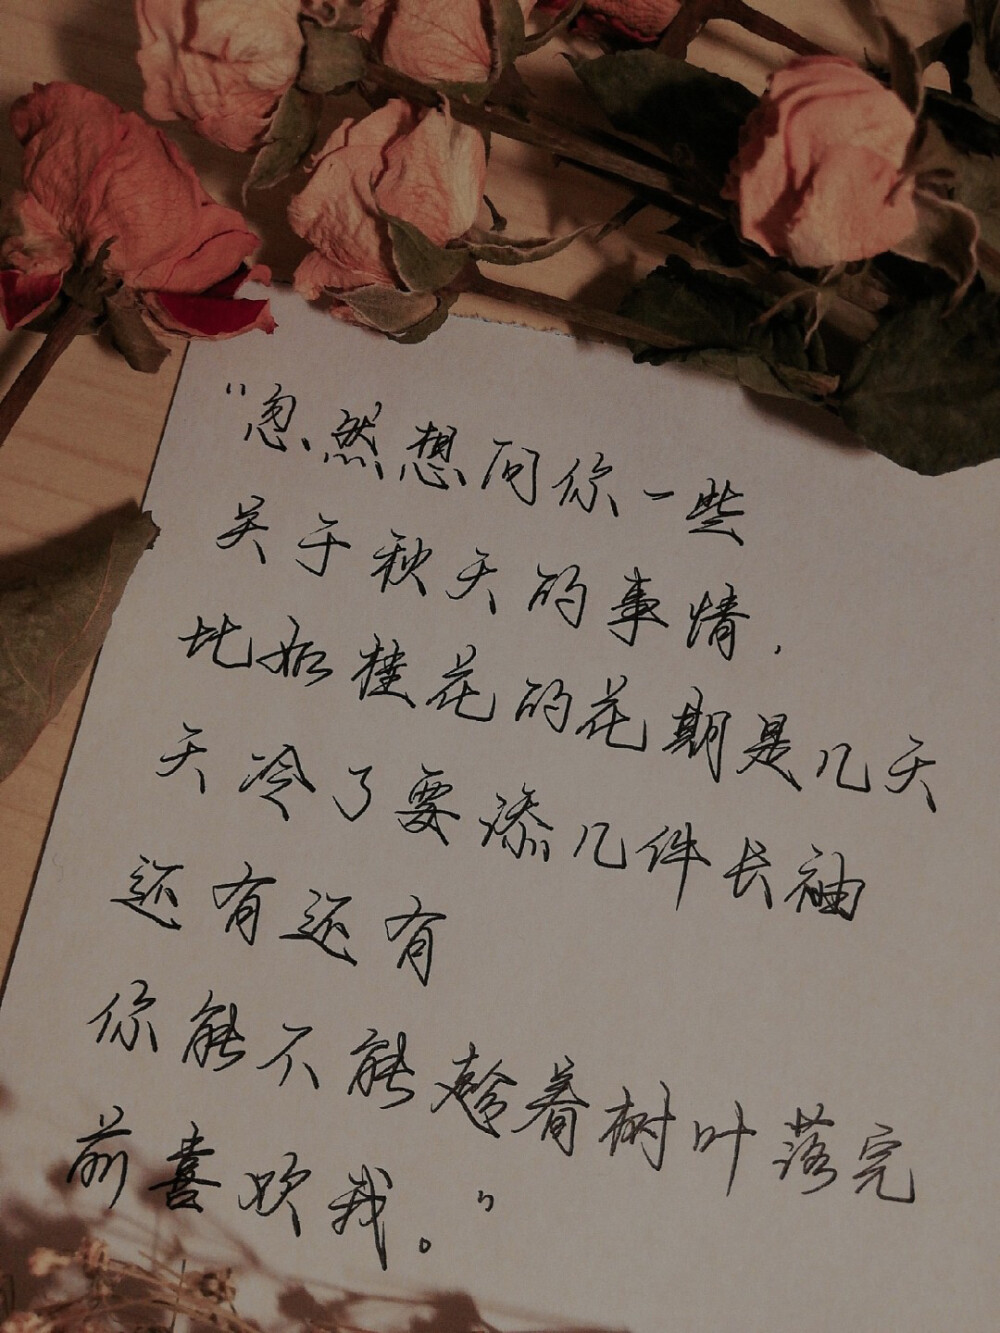 “忽然想问你一些
关于秋天的事情，
比如桂花的花期是几天
天冷了要添几件长袖
还有还有
你能不能趁着树叶落完
前喜欢我。”